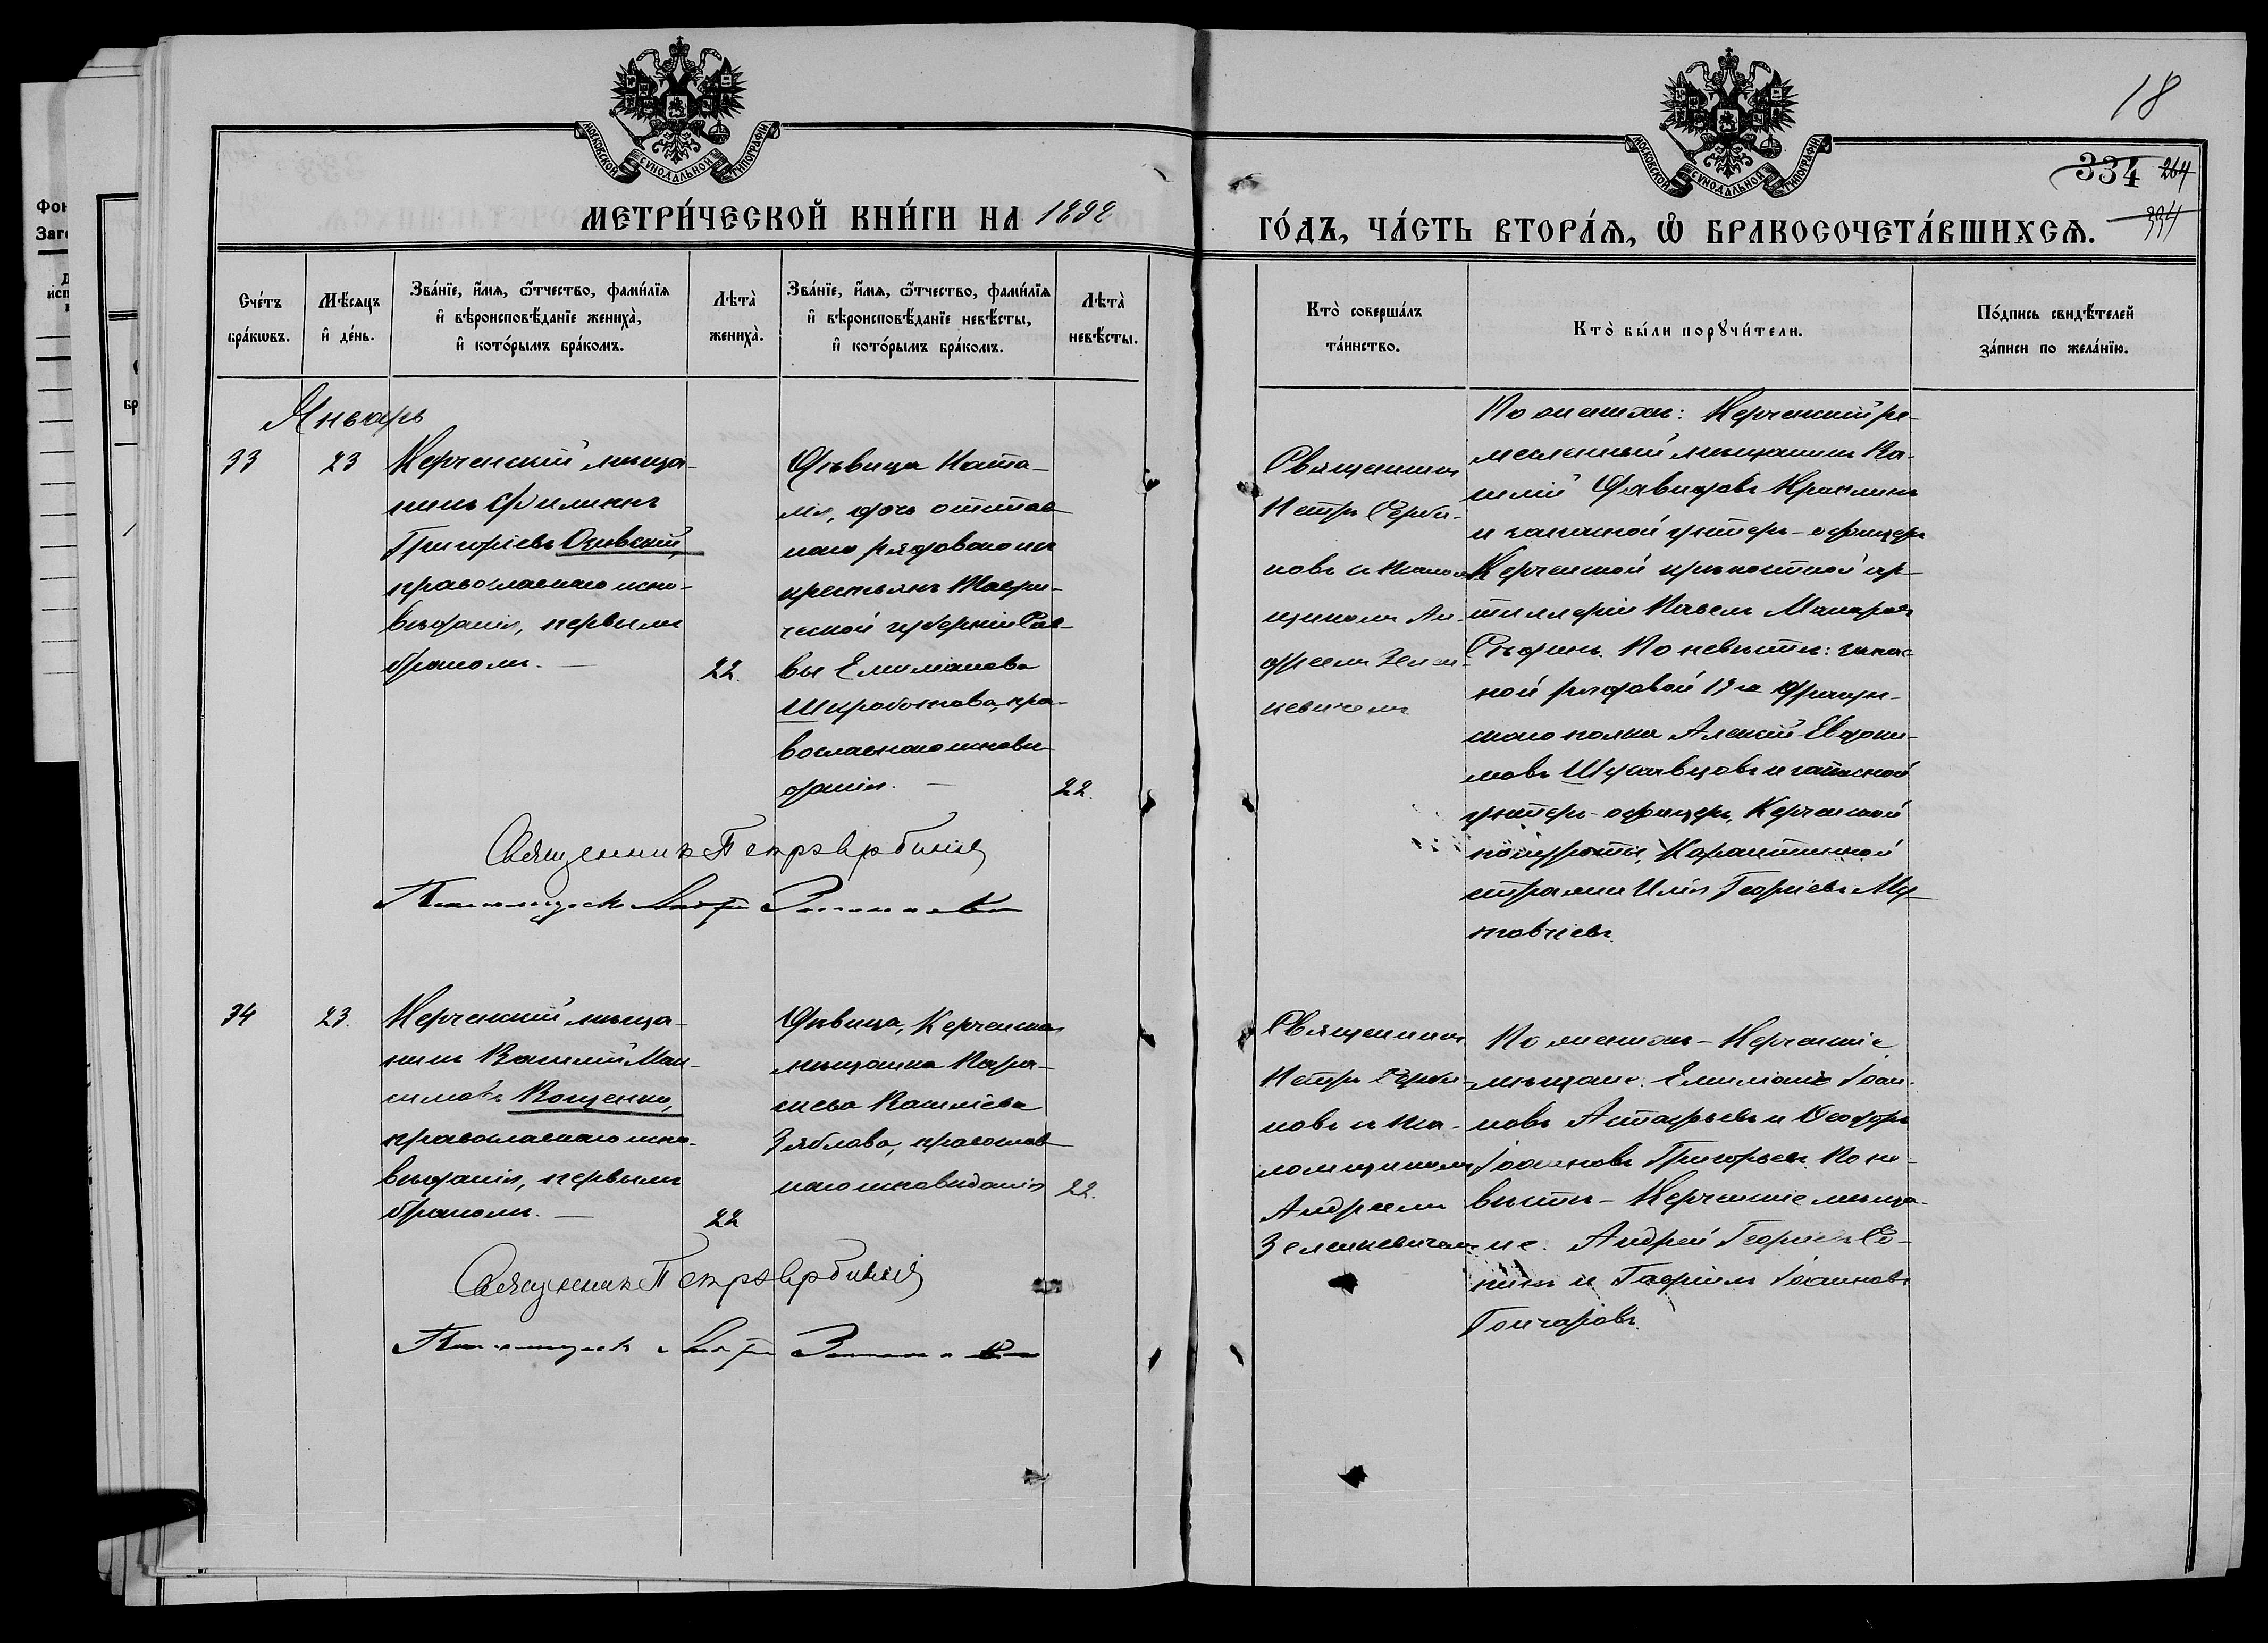 18
334 264
334
МОСКОВСКОЙ СУНОДАЛЬНОЙ ТИПОГРАФІИ
МОСКОВСКОЙ СУНОДАЛЬНОЙ ТИПОГРАФІИ
МЕТРИ́ЧЕСКОЙ КНИ́ГИ НА 1898
ГО́ДЪ, ЧА́СТЬ ВТОРА́Ѧ, Ѡ БРАКОСОЧЕТА́ВШИХСѦ.
Сче́тъ бра́кѡвъ.
Мѣ́сяцъ и де́нь.
Зва́нїе, и́мѧ, ѻ́тчество, фами́лїѧ
и вѣроисповѣ́данїе жениха̀,
и кото́рымъ бра́комъ.
Лѣта̀ жениха̀.
Зва́нїе, и́мѧ, ѻ́тчество, фами́лїѧ
и вѣроисповѣ́данїе невѣ́сты,
и кото́рымъ бра́комъ.
Лѣта̀ невѣ́сты.
Кто̀ соверша́лъ
та́инство.
Кто̀ бы́ли порꙋчи́тели.
По́дпись свидѣ́телей
за́писи по жела́нїю.
Январь
33
23
Керченскій мѣща-
нинъ Филиппъ
Григоріевъ
православнаго испо-
вѣданія, первымъ
бракомъ. —
22.
Дѣвица Ната-
лія, дочь отстав
наго рядоваго изъ
крестьянъ Таври-
ческой губерніи Сав-
вы Емиліанова
пра-
вославнаго исповѣ
данія. —
22.
Священникъ
Петръ Серби-
новъ съ псалом
щикомъ Ан-
дреемъ Зелен-
кевичемъ
По женихѣ: Керченскій ре-
месленный мѣщанинъ Ва-
силій Давидовъ
и запасной унтеръ-офицеръ
Керченской крѣпостной ар-
тиллеріи Павелъ Макаровъ
По невѣстѣ: запас-
ной рядовой
полка Алексій Евдоки-
мовъ и запасной
унтеръ-офицеръ, Керченской
Карантинной
стражи Илія Георгіевъ
Священникъ Петръ Сербиновъ
Псаломщикъ Андрей
34
23.
Керченскій мѣща-
нинъ Василій Мак-
симовъ Ващенко,
православнаго испо-
вѣданія, первымъ
бракомъ. —
22
Дѣвица, Керченская
мѣщанка Пара-
скева Василіева
Зяблова, православ
наго исповѣданія
22.
Священникъ
Петръ Серби-
новъ съ пса-
ломщикомъ
Андреемъ
Зеленкевичемъ.
По женихѣ - Керченскіе
мѣщане: Емиліанъ Іоан-
новъ Астафьевъ и Ѳеодоръ
Іоанновъ Григорьевъ. По не-
вѣстѣ - Керченскіе мѣща-
не: Андрей Георгіевъ
и Гавріилъ Іоанновъ
Гончаровъ.
Священникъ Петръ Сербиновъ
Псаломщикъ Андрей